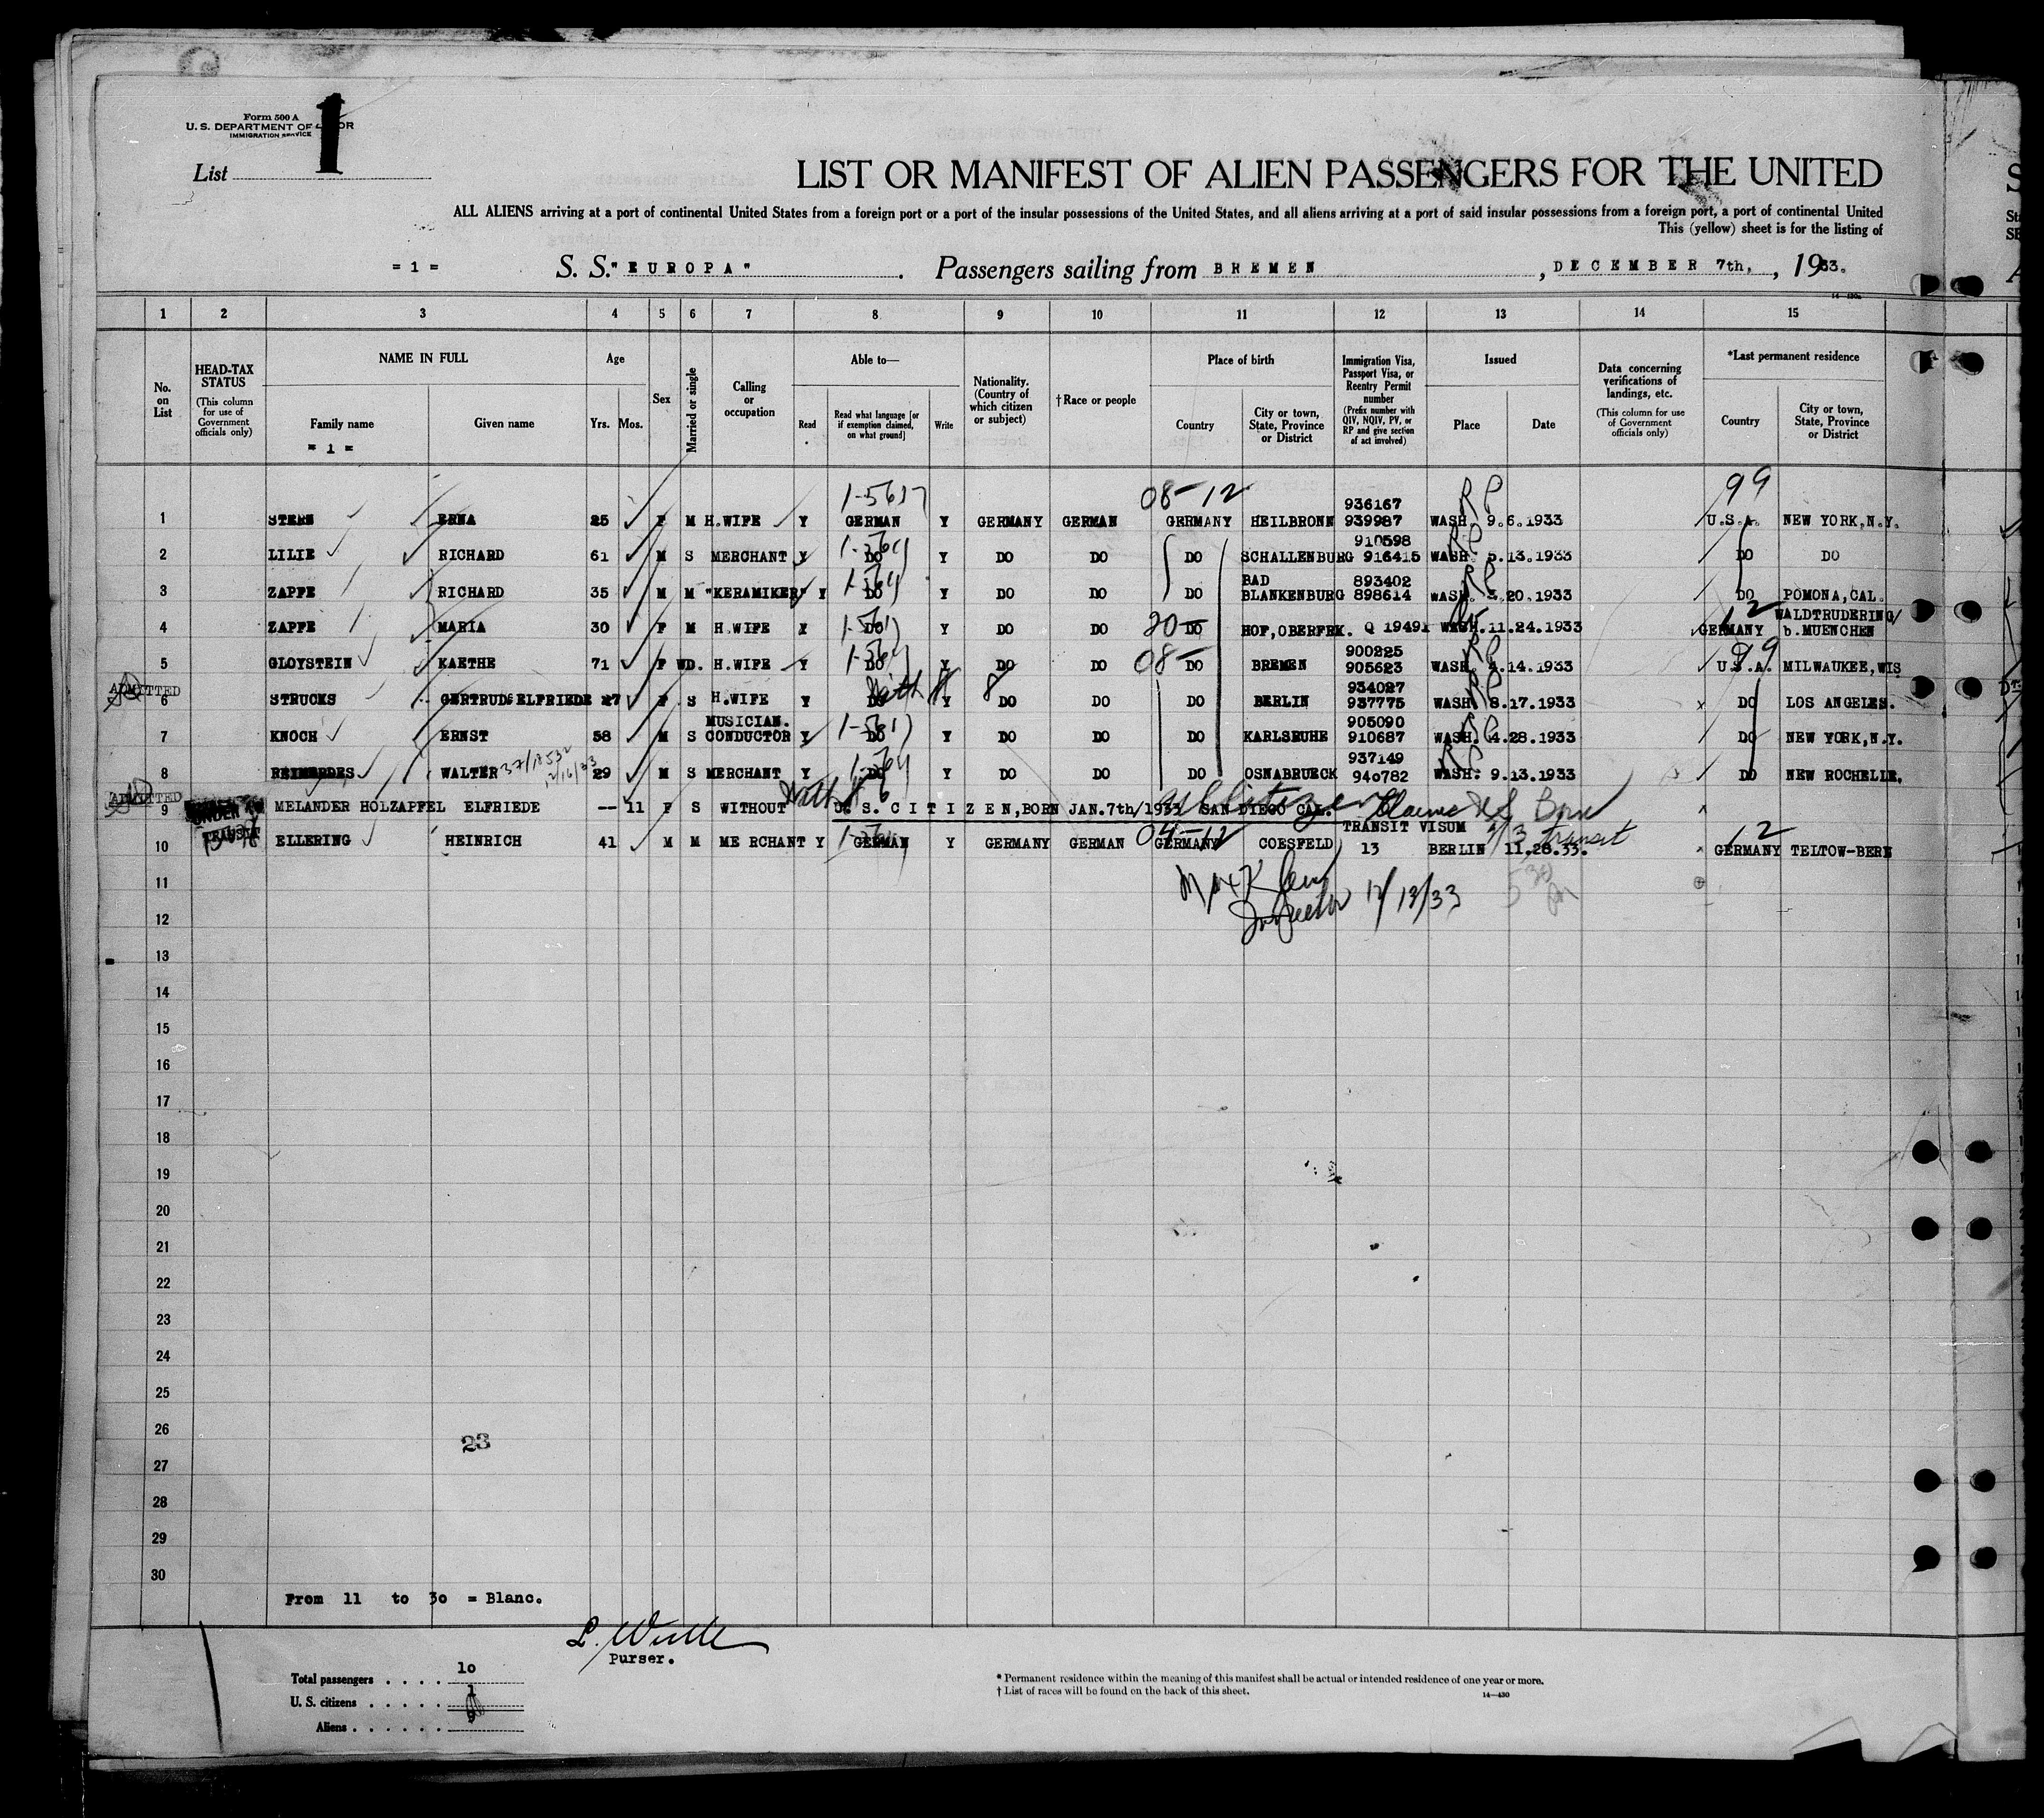 Form 500 A
U. S. DEPARTMENT OF LABOR
IMMIGRATION SERVICE
1
List
LIST OR MANIFEST OF ALIEN PASSENGERS FOR THE UNITED
ALL ALIENS arriving at a port of continental United States from a foreign port or a port of the insular possessions of the United States, and all aliens arriving at a port of said insular possessions from a foreign port, a port of continental United
This (yellow) sheet is for the listing of
= 1 = S. S. "EUROPA" . Passengers sailing from BREMEN , DECEMBER 7th, , 1933.
1 2 3 4 5 6 7 8 9 10 11 12 13 14 15
No. on List
HEAD-TAX STATUS (This column for use of Government officials only)
NAME IN FULL
Family name Given name
= 1 =
Age
Yrs. Mos.
Sex
Married or single
Calling or occupation
Able to—
Read Read what language [or if exemption claimed, on what ground] Write
Nationality. (Country of which citizen or subject)
†Race or people
Place of birth
Country City or town, State, Province or District
Immigration Visa, Passport Visa, or Reentry Permit number (Prefix number with QIV, NQIV, PV, or RP and give section of act involved)
Issued
Place Date
Data concerning verifications of landings, etc. (This column for use of Government officials only)
*Last permanent residence
Country City or town, State, Province or District
1-5617 08-12 936167 RP 99
1 STERN ERNA 25 F M H.WIFE Y GERMAN Y GERMANY GERMAN GERMANY HEILBRONN 939987 WASH. 9.6.1933 U.S.A. NEW YORK,N.Y.
910598
2 LILIE RICHARD 61 M S MERCHANT Y DO Y DO DO DO SCHALLENBURG 916415 WASH. 5.13.1933 DO DO
BAD 893402
3 ZAPPE RICHARD 35 M M "KERAMIKER" Y DO Y DO DO DO BLANKENBURG 898614 WASH. 3.20.1933 DO POMONA,CAL.
20- 12 WALDTRUDERING/
4 ZAPPE MARIA 30 F M H.WIFE Y DO Y DO DO DO HOF,OBERFRK. Q 19491 WASH.11.24.1933 GERMANY b.MUENCHEN
08- 900225 99
5 GLOYSTEIN KAETHE 71 F WD. H.WIFE Y DO Y DO DO DO BREMEN 905623 WASH. 4.14.1933 U.S.A. MILWAUKEE,WIS
ADMITTED 934027
6 STRUCKS GERTRUD ELFRIEDE 27 F S H.WIFE Y DO Y DO DO DO BERLIN 937775 WASH. 8.17.1933 DO LOS ANGELES.
MUSICIAN. 905090
7 KNOCH ERNST 58 M S CONDUCTOR Y DO Y DO DO DO KARLSRUHE 910687 WASH. 4.28.1933 DO NEW YORK,N.Y.
937149
8 REIMERDES WALTER 29 M S MERCHANT Y DO Y DO DO DO OSNABRUECK 940782 WASH. 9.13.1933 DO NEW ROCHELLE.
ADMITTED
9 MELANDER HOLZAPFEL ELFRIEDE -- 11 F S WITHOUT U. S. C I T I Z E N,BORN JAN.7th/1933 SAN DIEGO CAL.
UNDER
TRANSIT 04-12 TRANSIT VISUM transit 12
10 ELLERING HEINRICH 41 M M ME RCHANT Y GERMAN Y GERMANY GERMAN GERMANY COESFELD 13 BERLIN 11.28.33. GERMANY TELTOW-BERN
11
Inspector 12/13/33
12
13
14
15
16
17
18
19
20
21
22
23
24
25
26
23
27
28
29
30
From 11 to 30 = Blanc.
Purser.
Total passengers . . . . 10
U. S. citizens . . . . . 1
Aliens . . . . . . 9
* Permanent residence within the meaning of this manifest shall be actual or intended residence of one year or more.
† List of races will be found on the back of this sheet.
14—430